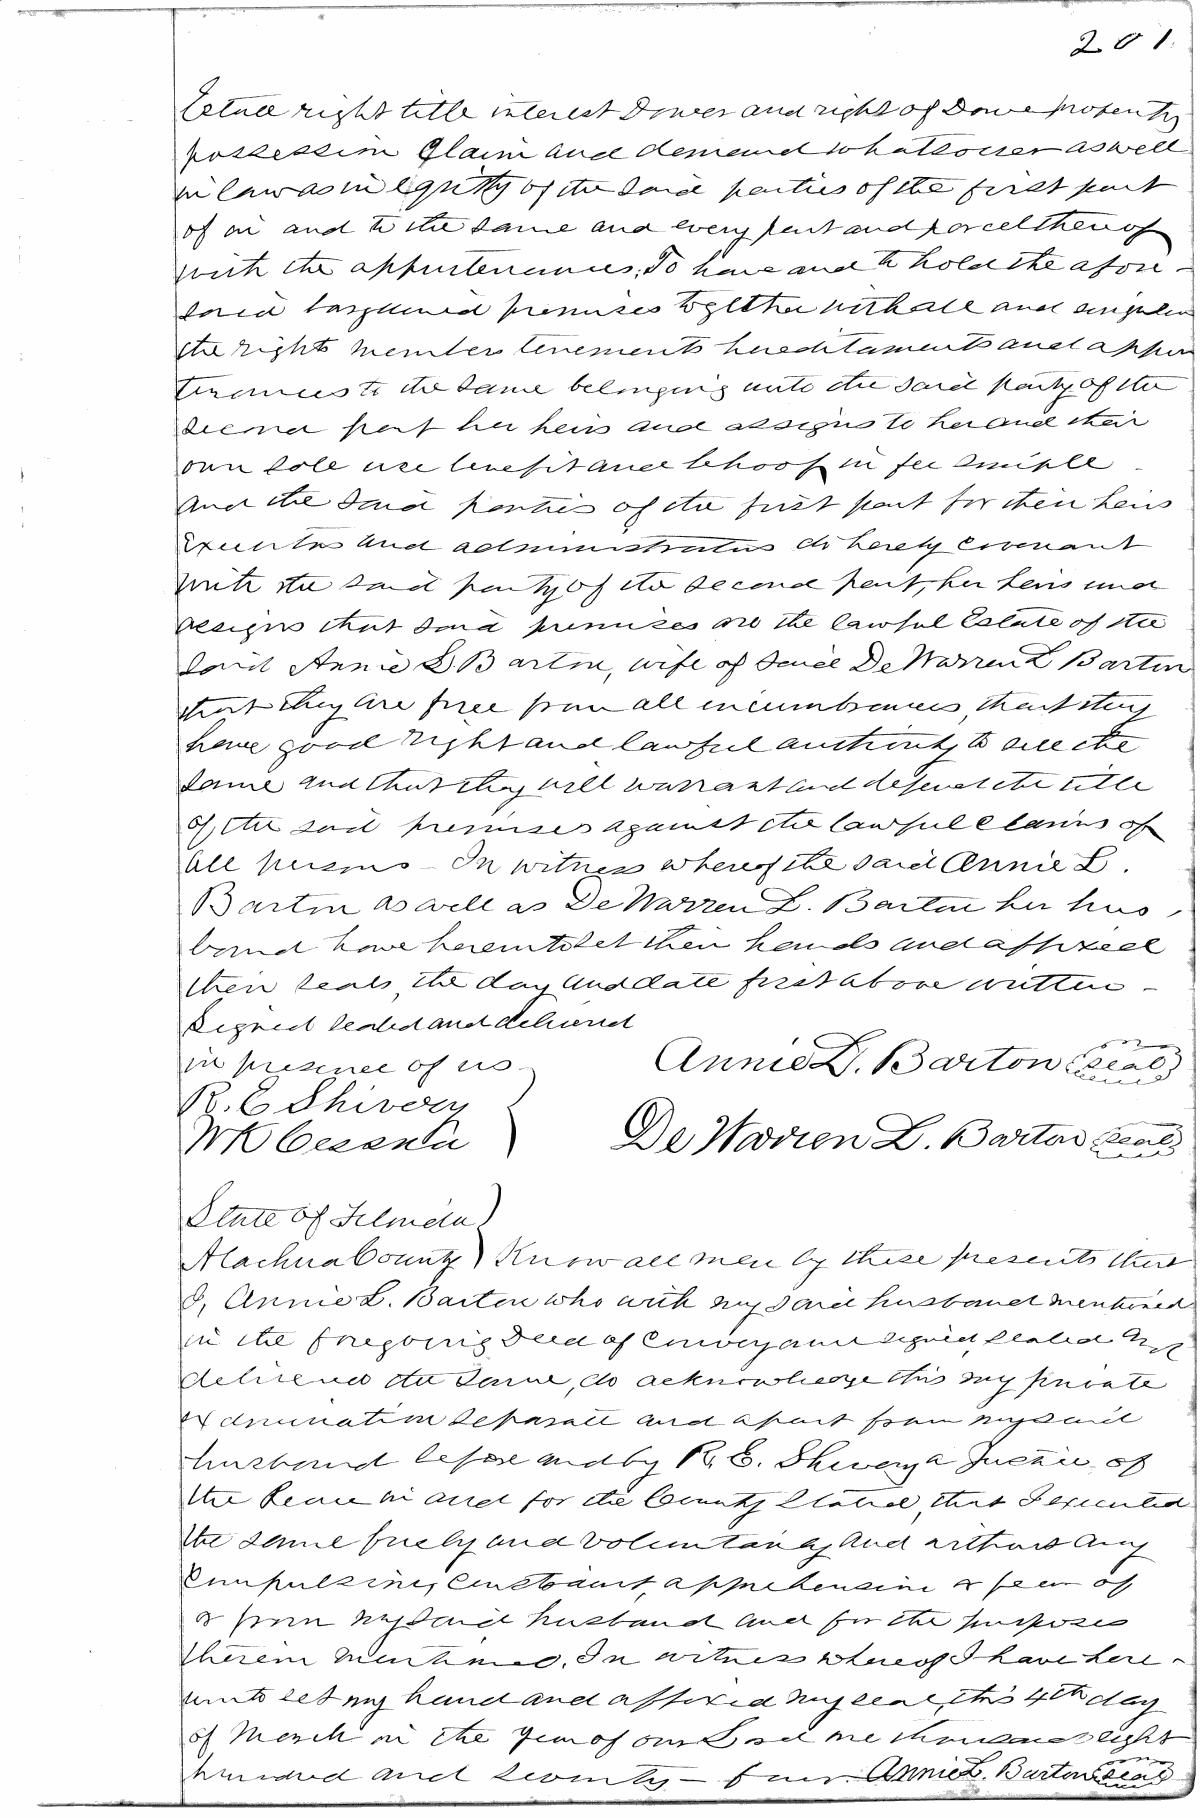 201.
Estate right title interest Dower and right of Dower property
possession Claim and demand whatsoever as well
in law as in equity of the said parties of the first part
of in and to the same and every part and parcel thereof
with the appurtenances; To have and to hold the afore-
said bargained premises together with all and singular
the rights members tenements hereditaments and appur
tenances to the same belonging unto the said party of the
second part her heirs and assigns to her and their
own sole use benefit and behoof in fee simple -
and the said parties of the first part for their heirs
Executors and administrators do hereby covenant
with the said party of the second part, her heirs and
assigns that said premises are the lawful Estate of the
said Annie L Barton, wife of said De Warren L Barton
that they are free from all incumbrances, that they
have good right and lawful authority to sell the
same and that they will warrant and defend the title
of the said premises against the lawful claims of
all persons - In witness whereof the said Annie L.
Barton as well as De Warren L. Barton her hus,
band have hereunto set their hands and affixed
their seals, the day and date first above written -
Signed sealed and delivered
in presence of us
Annie L. Barton (seal)
R. E Shivery
WK Cessna
De Warren L. Barton (seal)
State of Florida )
Alachua County ) Know all men by these presents that
I, Annie L. Barton who with my said husband mentioned
in the foregoing Deed of Conveyance signed, sealed and
delivered the same, do acknowledge this my private
examination separate and apart from my said
husband before and by R. E. Shivery a Justice of
the Peace in and for the County Stated, that I executed
the same freely and voluntarily and without any
Compulsion, Constraint, apprehension or fear of
or from my said husband and for the purposes
therein mentioned. In witness whereof I have here-
unto set my hand and affixed my seal, this 4th day
of March in the year of our Lord one thousand eight
hundred and seventy - four. Annie L. Barton (seal)